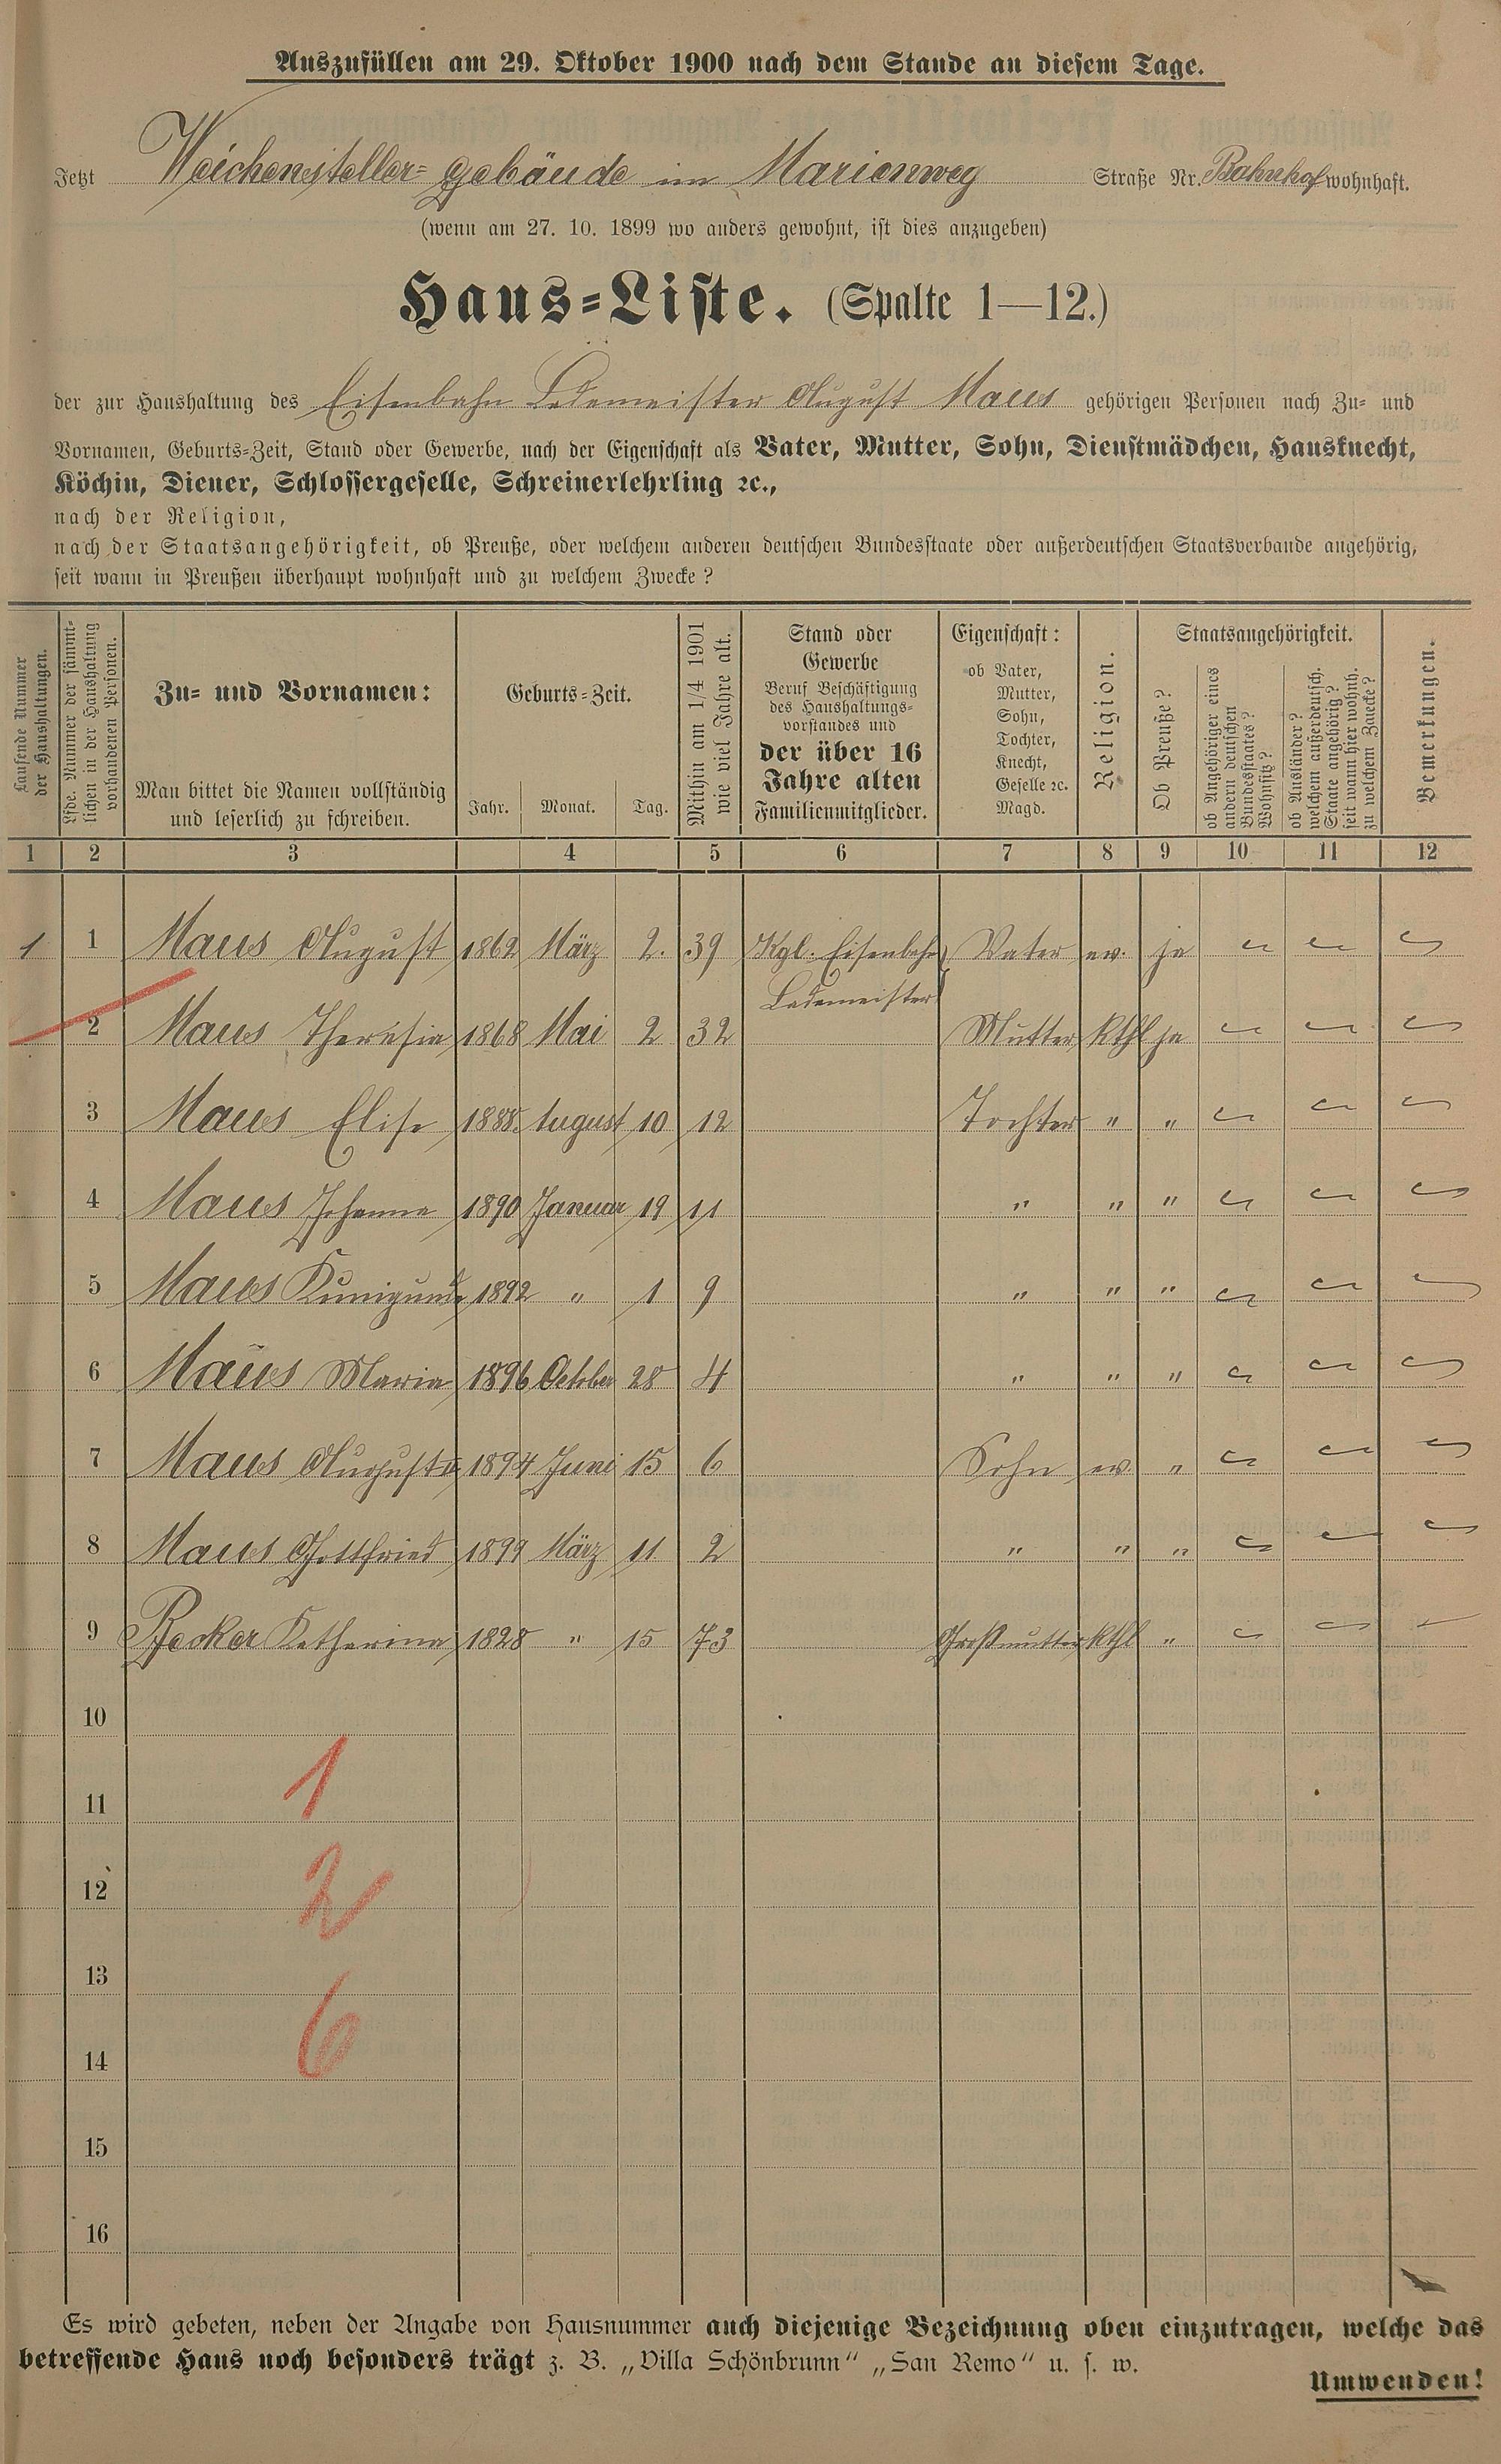 Auszufüllen am 29. Oktober 1900 nach dem Stande an diesem Tage.
Jetzt Weichensteller=gebäude im Marienweg Straße Nr. Bahnhof wohnhaft.
(wenn am 27. 10. 1899 wo anders gewohnt, ist dies anzugeben)
Haus=Liste. (Spalte 1—12.)
der zur Haushaltung des Eisenbahn Lademeister August Maus gehörigen Personen nach Zu= und
Vornamen, Geburts=Zeit, Stand oder Gewerbe, nach der Eigenschaft als Vater, Mutter, Sohn, Dienstmädchen, Hausknecht,
Köchin, Diener, Schlossergeselle, Schreinerlehrling ꝛc.,
nach der Religion,
nach der Staatsangehörigkeit, ob Preuße, oder welchem anderen deutschen Bundesstaate oder außerdeutschen Staatsverbande angehörig,
seit wann in Preußen überhaupt wohnhaft und zu welchem Zwecke?
Laufende Nummer
der Haushaltungen.
Lfde. Nummer der sämmt-
lichen in der Haushaltung
vorhandenen Personen.
Zu= und Vornamen:
Man bittet die Namen vollständig
und leserlich zu schreiben.
Geburts=Zeit.
Jahr. Monat. Tag.
Mithin am 1/4 1901
wie viel Jahre alt.
Stand oder
Gewerbe
Beruf Beschäftigung
des Haushaltungs-
vorstandes und
der über 16
Jahre alten
Familienmitglieder.
Eigenschaft:
ob Vater,
Mutter,
Sohn,
Tochter,
Knecht,
Geselle ꝛc.
Magd.
Religion.
Staatsangehörigkeit.
Ob Preuße?
ob Angehöriger eines
andern deutschen
Bundesstaates?
Wohnsitz?
ob Ausländer?
welchem außerdeutsch.
Staate angehörig?
seit wann hier wohnh.
zu welchem Zwecke?
Bemerkungen.
1 2 3 4 5 6 7 8 9 10 11 12
1 1 Maus August 1862 März 2. 39 Kgl. Eisenbahn Vater ev. ja
Lademeister
2 Maus Theresia 1868 Mai 2 32 Mutter kthl ja
3 Maus Elise 1888. August 10 12 Tochter " "
4 Maus Johanna 1890 Januar 19 11 " " "
5 Maus Kunigunde 1892 " 1 9 " " "
6 Maus Maria 1896 October 28 4 " " "
7 Maus August II 1894 Juni 15 6 Sohn ev. "
8 Maus Gottfried 1899 März 11 2 " " "
9 Becker Katharina 1828 " 15 73 Großmutter kthl "
10
11 1
12 2
13
14 6
15
16
Es wird gebeten, neben der Angabe von Hausnummer auch diejenige Bezeichnung oben einzutragen, welche das
betreffende Haus noch besonders trägt z. B. „Villa Schönbrunn“ „San Remo“ u. s. w.
Umwenden!